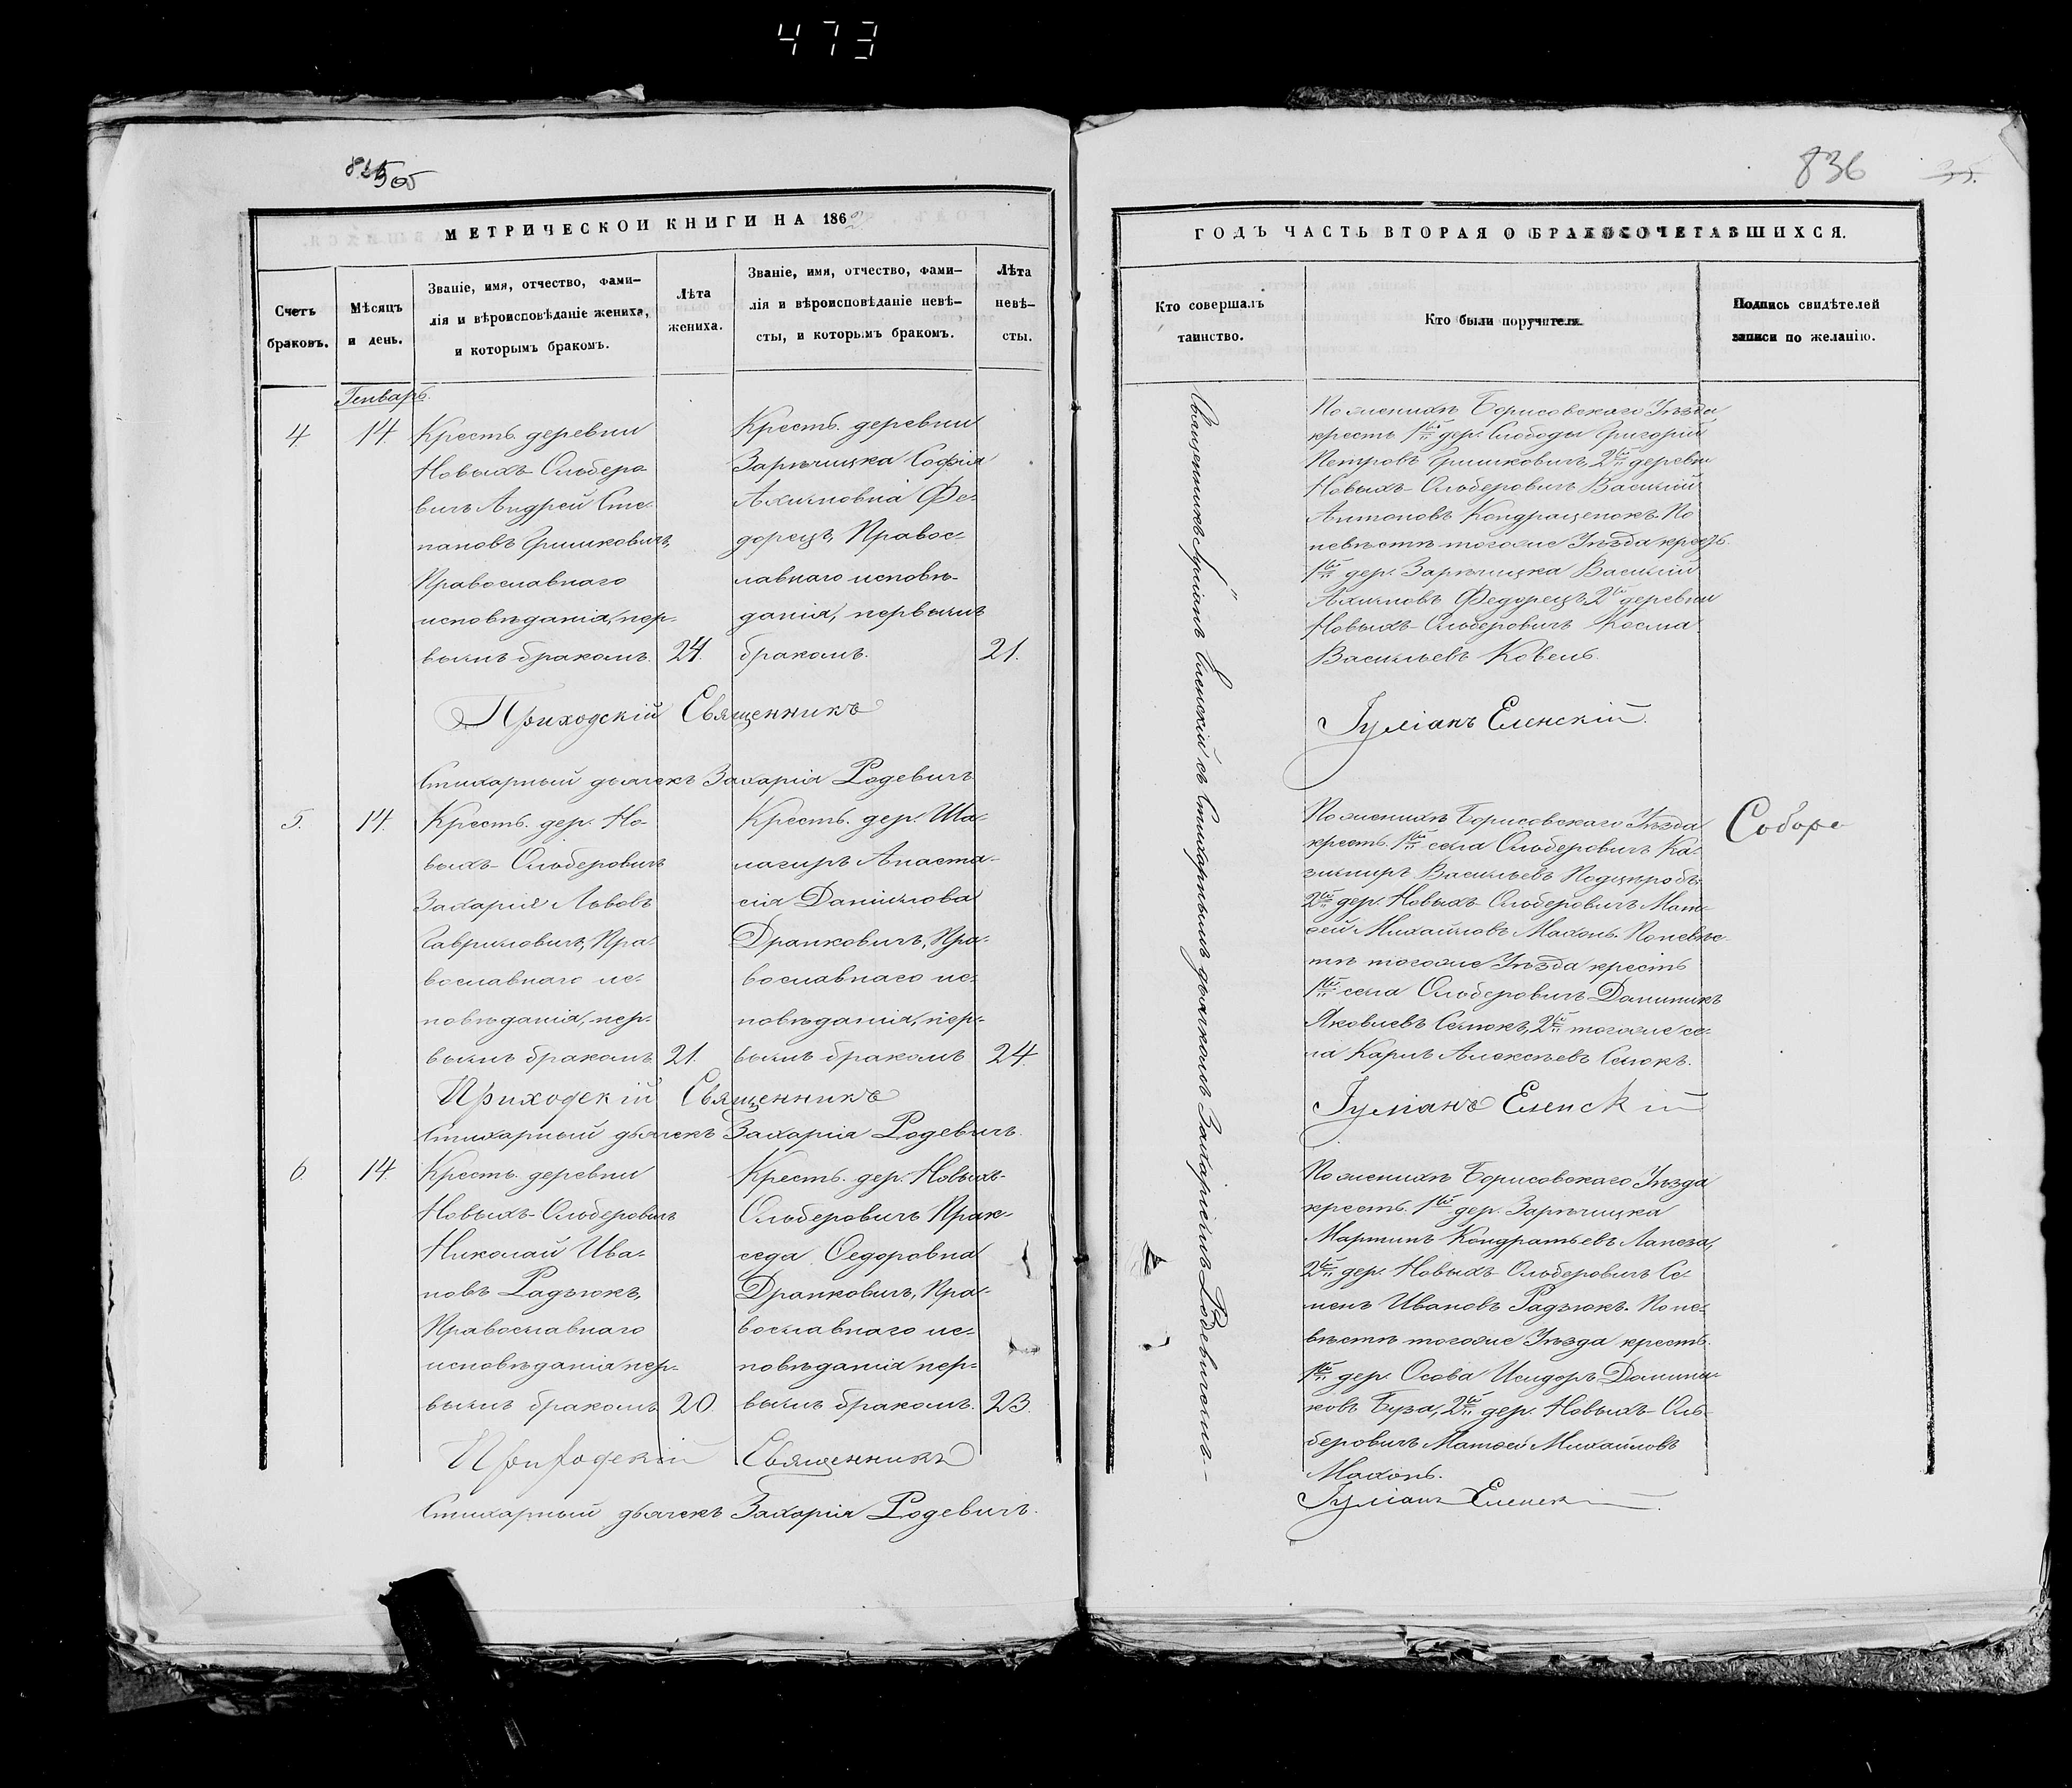 473
305
МЕТРИЧЕСКОЙ КНИГИ НА 1862
Счетъ браковъ.
Мѣсяцъ и день.
Званіе, имя, отчество, фами-
лія и вѣроисповѣданіе жениха,
и которымъ бракомъ.
Лѣта жениха.
Званіе, имя, отчество, фами-
лія и вѣроисповѣданіе невѣ-
сты, и которымъ бракомъ.
Лѣта невѣ-
сты.
Генварь
4.
14.
Крестъ. деревни
Новыхъ-Ольберо
вичъ Андрей Сте-
пановъ Гришковичъ,
Православнаго
исповѣданія, пер-
вымъ бракомъ.
24.
Крестъ. деревни
Зарѣчицка Софія
Ахимовна Фе-
дорецъ, Правос-
лавнаго исповѣ-
данія, первымъ
бракомъ.
21.
Приходскій Священникъ
Стихарный дьячекъ Захарія Родевичъ
5.
14.
Крестъ. дер. Но-
выхъ-Ольберовичъ
Захарія Львовъ
Гавриловичъ, Пра-
вославнаго ис-
повѣданія, пер-
вымъ бракомъ
21.
Крестъ. дер. Ша-
лагиръ Анаста-
сія Даніилова
Дранковичъ, Пра-
вославнаго ис-
повѣданія, пер-
вымъ бракомъ
24.
Приходскій Священникъ
Стихарный дьячекъ Захарія Родевичъ.
6.
14.
Крестъ. деревни
Новыхъ-Ольберовичъ
Николай Ива-
новъ Радзюкъ,
Православнаго
исповѣданія пер-
вымъ бракомъ
20.
Крестъ. дер. Новыхъ-
Ольберовичъ Прак-
седа Ѳедоровна
Дранковичъ, Пра-
вославнаго ис-
повѣданія пер-
вымъ бракомъ.
23.
Приходскій Священникъ
Стихарный дьячекъ Захарія Родевичъ.
836
35.
ГОДЪ ЧАСТЬ ВТОРАЯ О БРАКОСОЧЕТАВШИХСЯ.
Кто совершалъ
таинство.
Кто были поручители.
Подпись свидѣтелей
записи по желанію.
Священникъ Іуліанъ Еленскій съ Стихарнымъ дьячкомъ Захаріемъ Родевичомъ.
По женихѣ Борисовскаго Уѣзда
крестъ 1й дер. Слободы Григорій
Петровъ Гришковичъ, 2й деревни
Новыхъ-Ольберовичъ Василій
Антоновъ Кондраценокъ. По
невѣстѣ тогоже Уѣзда крестъ.
1й дер. Зарѣчицка Василій
Ахимовъ Федорецъ, 2й деревни
Новыхъ-Ольберовичъ Косма
Васильевъ Ковель.
Іуліанъ Еленскій.
По женихѣ Борисовскаго Уѣзда
крестъ. 1й села Ольберовичъ Ка-
зимиръ Васильевъ
2й дер. Новыхъ-Ольберовичъ Мат-
ѳей Михайловъ Махонь. По невѣс-
тѣ тогоже Уѣзда крестъ
1й села Ольберовичъ Доминикъ
Яковлевъ Семюкъ, 2й тогоже се-
ла Карпъ Алексѣевъ Семюкъ.
Іуліанъ Еленскій
По женихѣ Борисовскаго Уѣзда
крестъ. 1й дер. Зарѣчицка
Мартинъ Кондратьевъ Лапеза,
2й дер. Новыхъ-Ольберовичъ Се-
менъ Ивановъ Радзюкъ. По не-
вѣстѣ тогоже Уѣзда крестъ.
1й дер. Осова Исидоръ Домини-
ковъ Буза, 2й дер. Новыхъ-Оль-
беровичъ Матѳей Михайловъ
Махонь.
Іуліанъ Еленскій